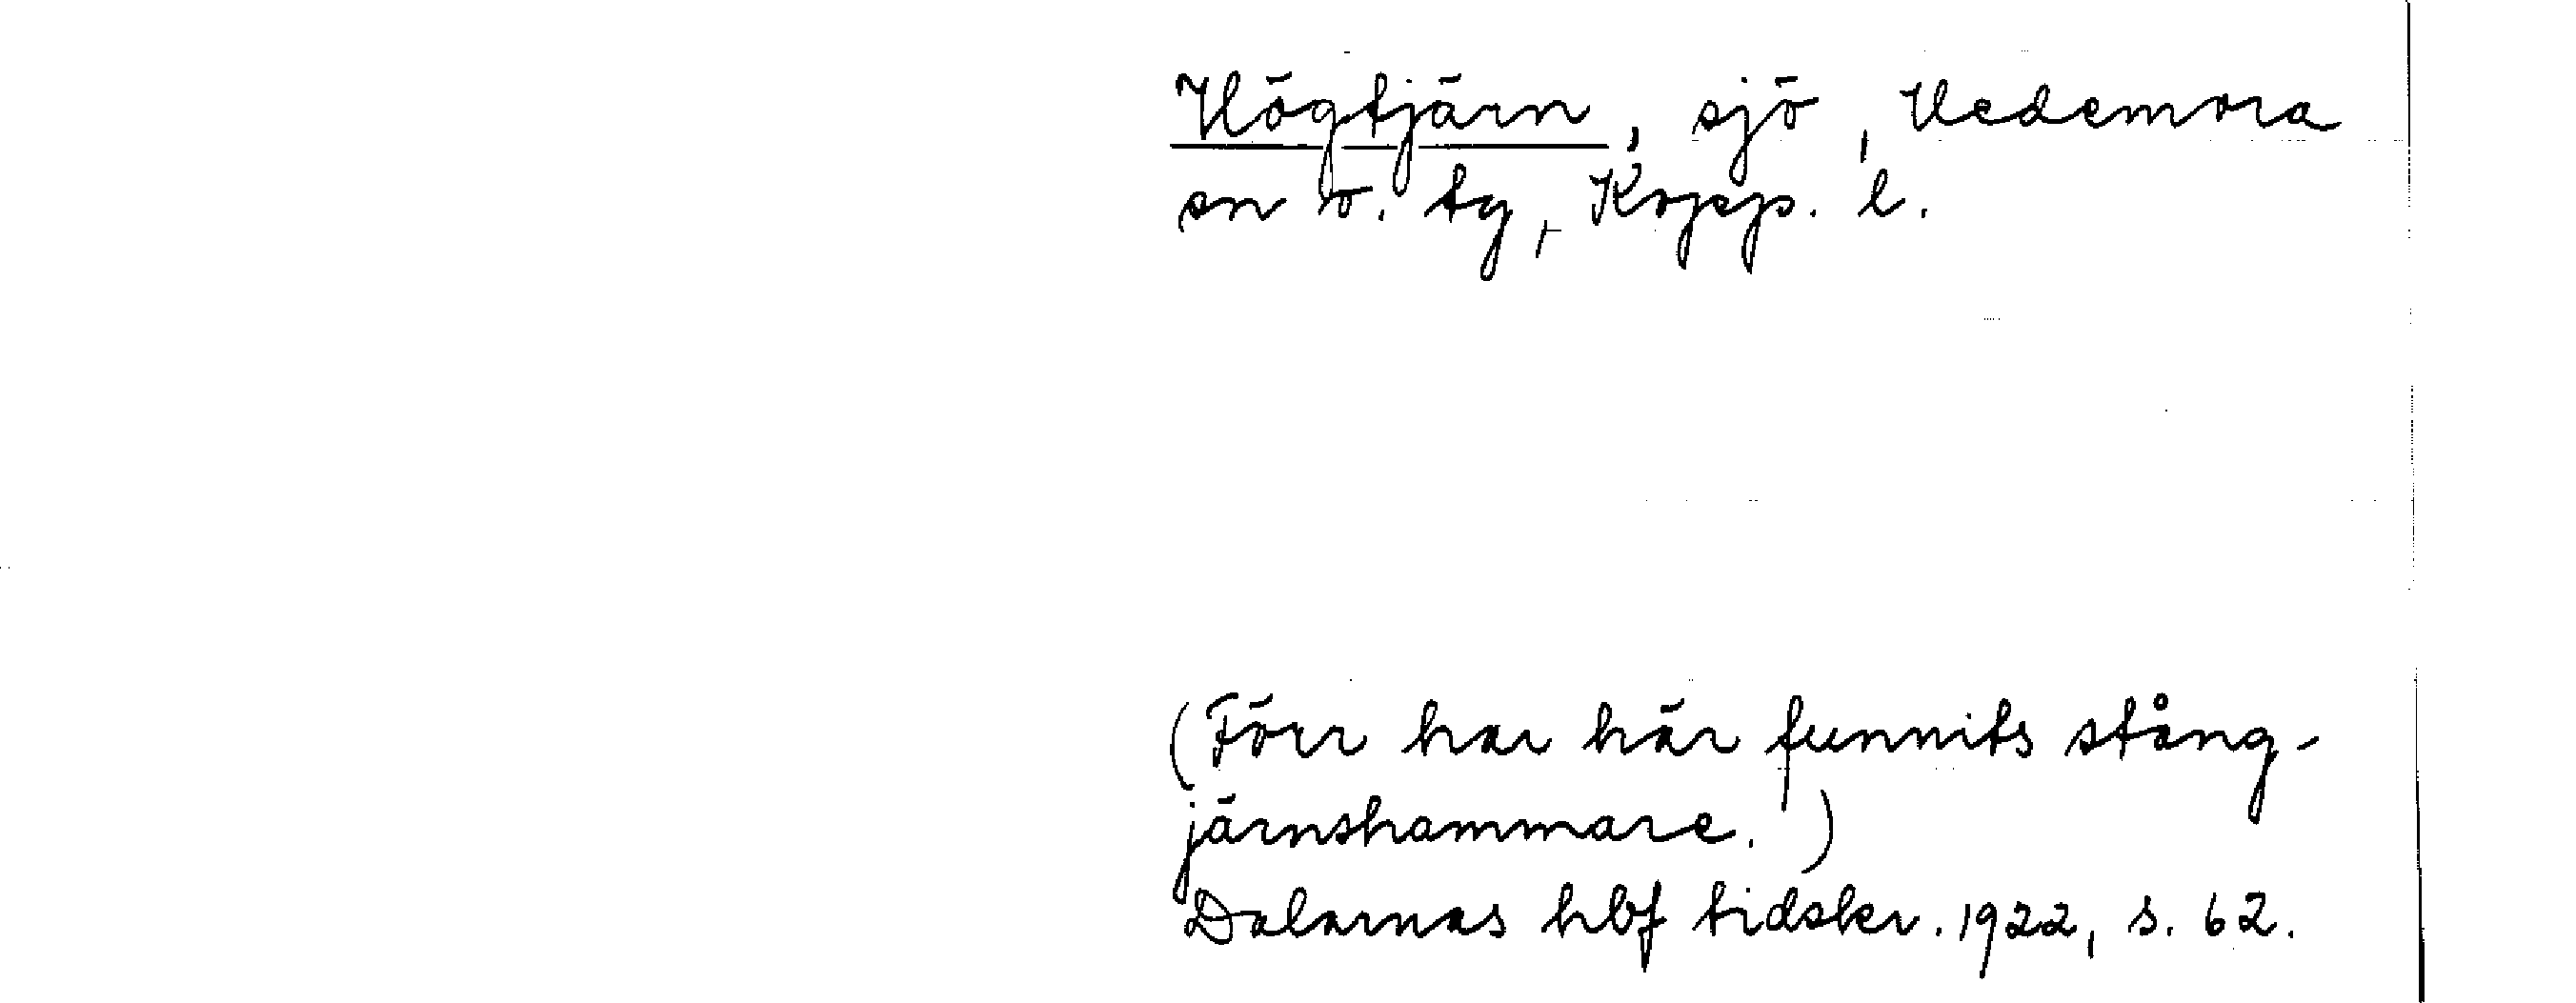 Högtjärn, sjö, Hedemora
sn o. tg, Kopp. l.
(Förr har här funnits stång-
järnshammare.)
Dalarnas hbf tidskr. 1922, s. 62.